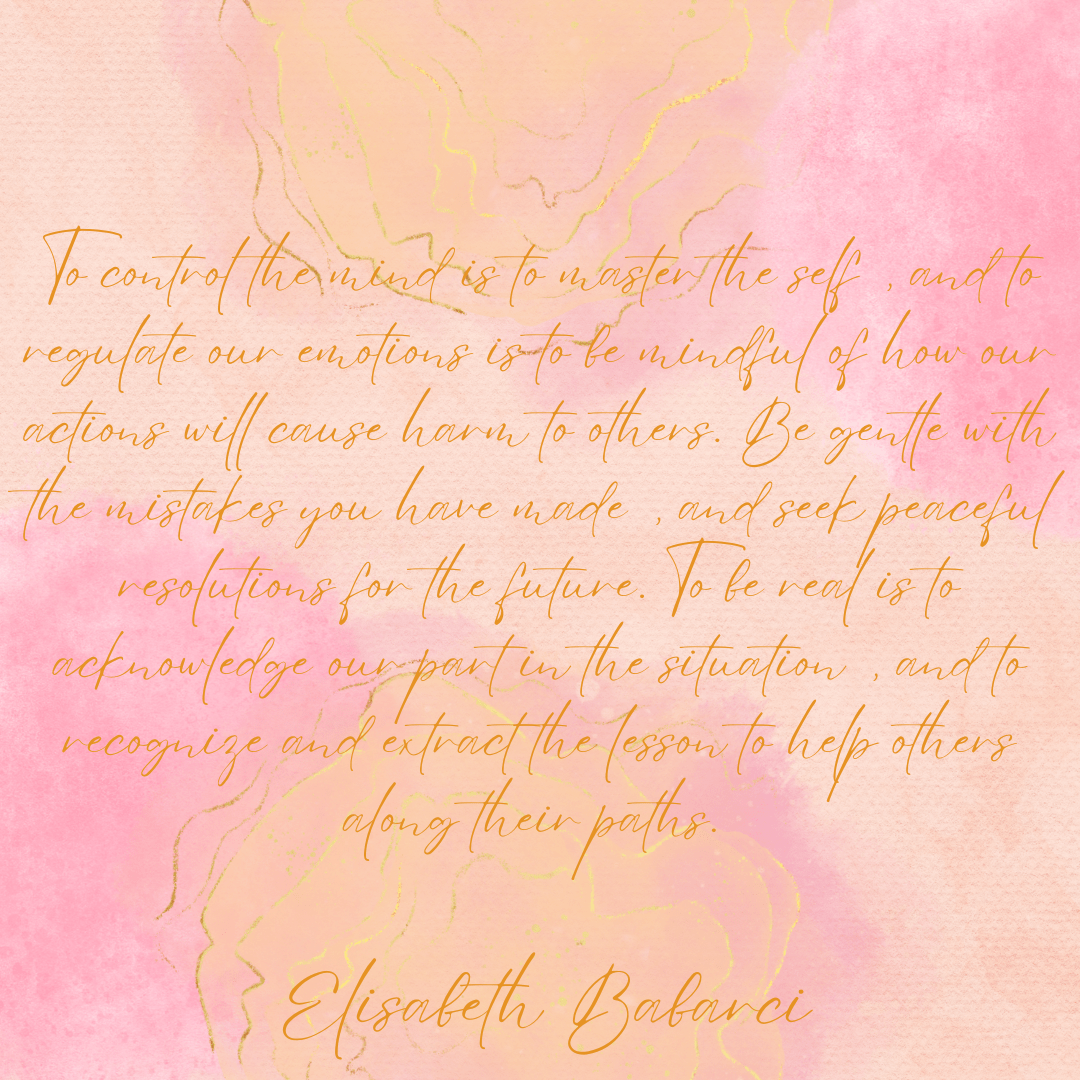 To control the mind is to master the self , and to
regulate our emotions is to be mindful of how our
actions will cause harm to others. Be gentle with
the mistakes you have made , and seek peaceful
resolutions for the future. To be real is to
acknowledge our part in the situation , and to
recognize and extract the lesson to help others
along their paths.
Elisabeth Babarci